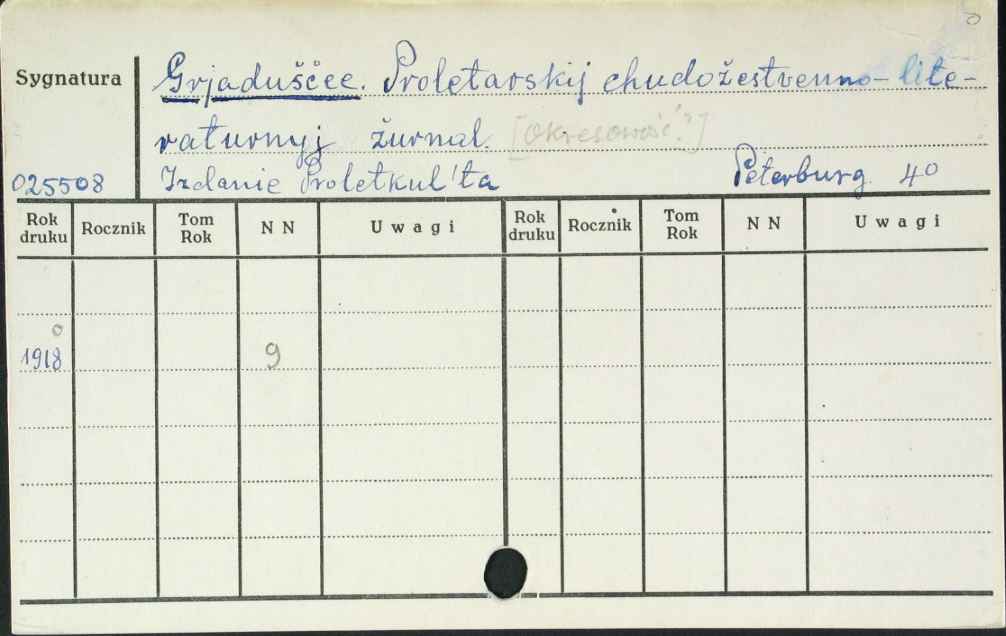 Sygnatura
Grjaduščee. Proletarskij chudožestvenno-lite-
raturnyj žurnal. [Okresowość?]
025508 Izdanie Proletkul'ta Peterburg 4°
Rok druku Rocznik Tom Rok NN Uwagi Rok druku Rocznik Tom Rok NN Uwagi
1918 9